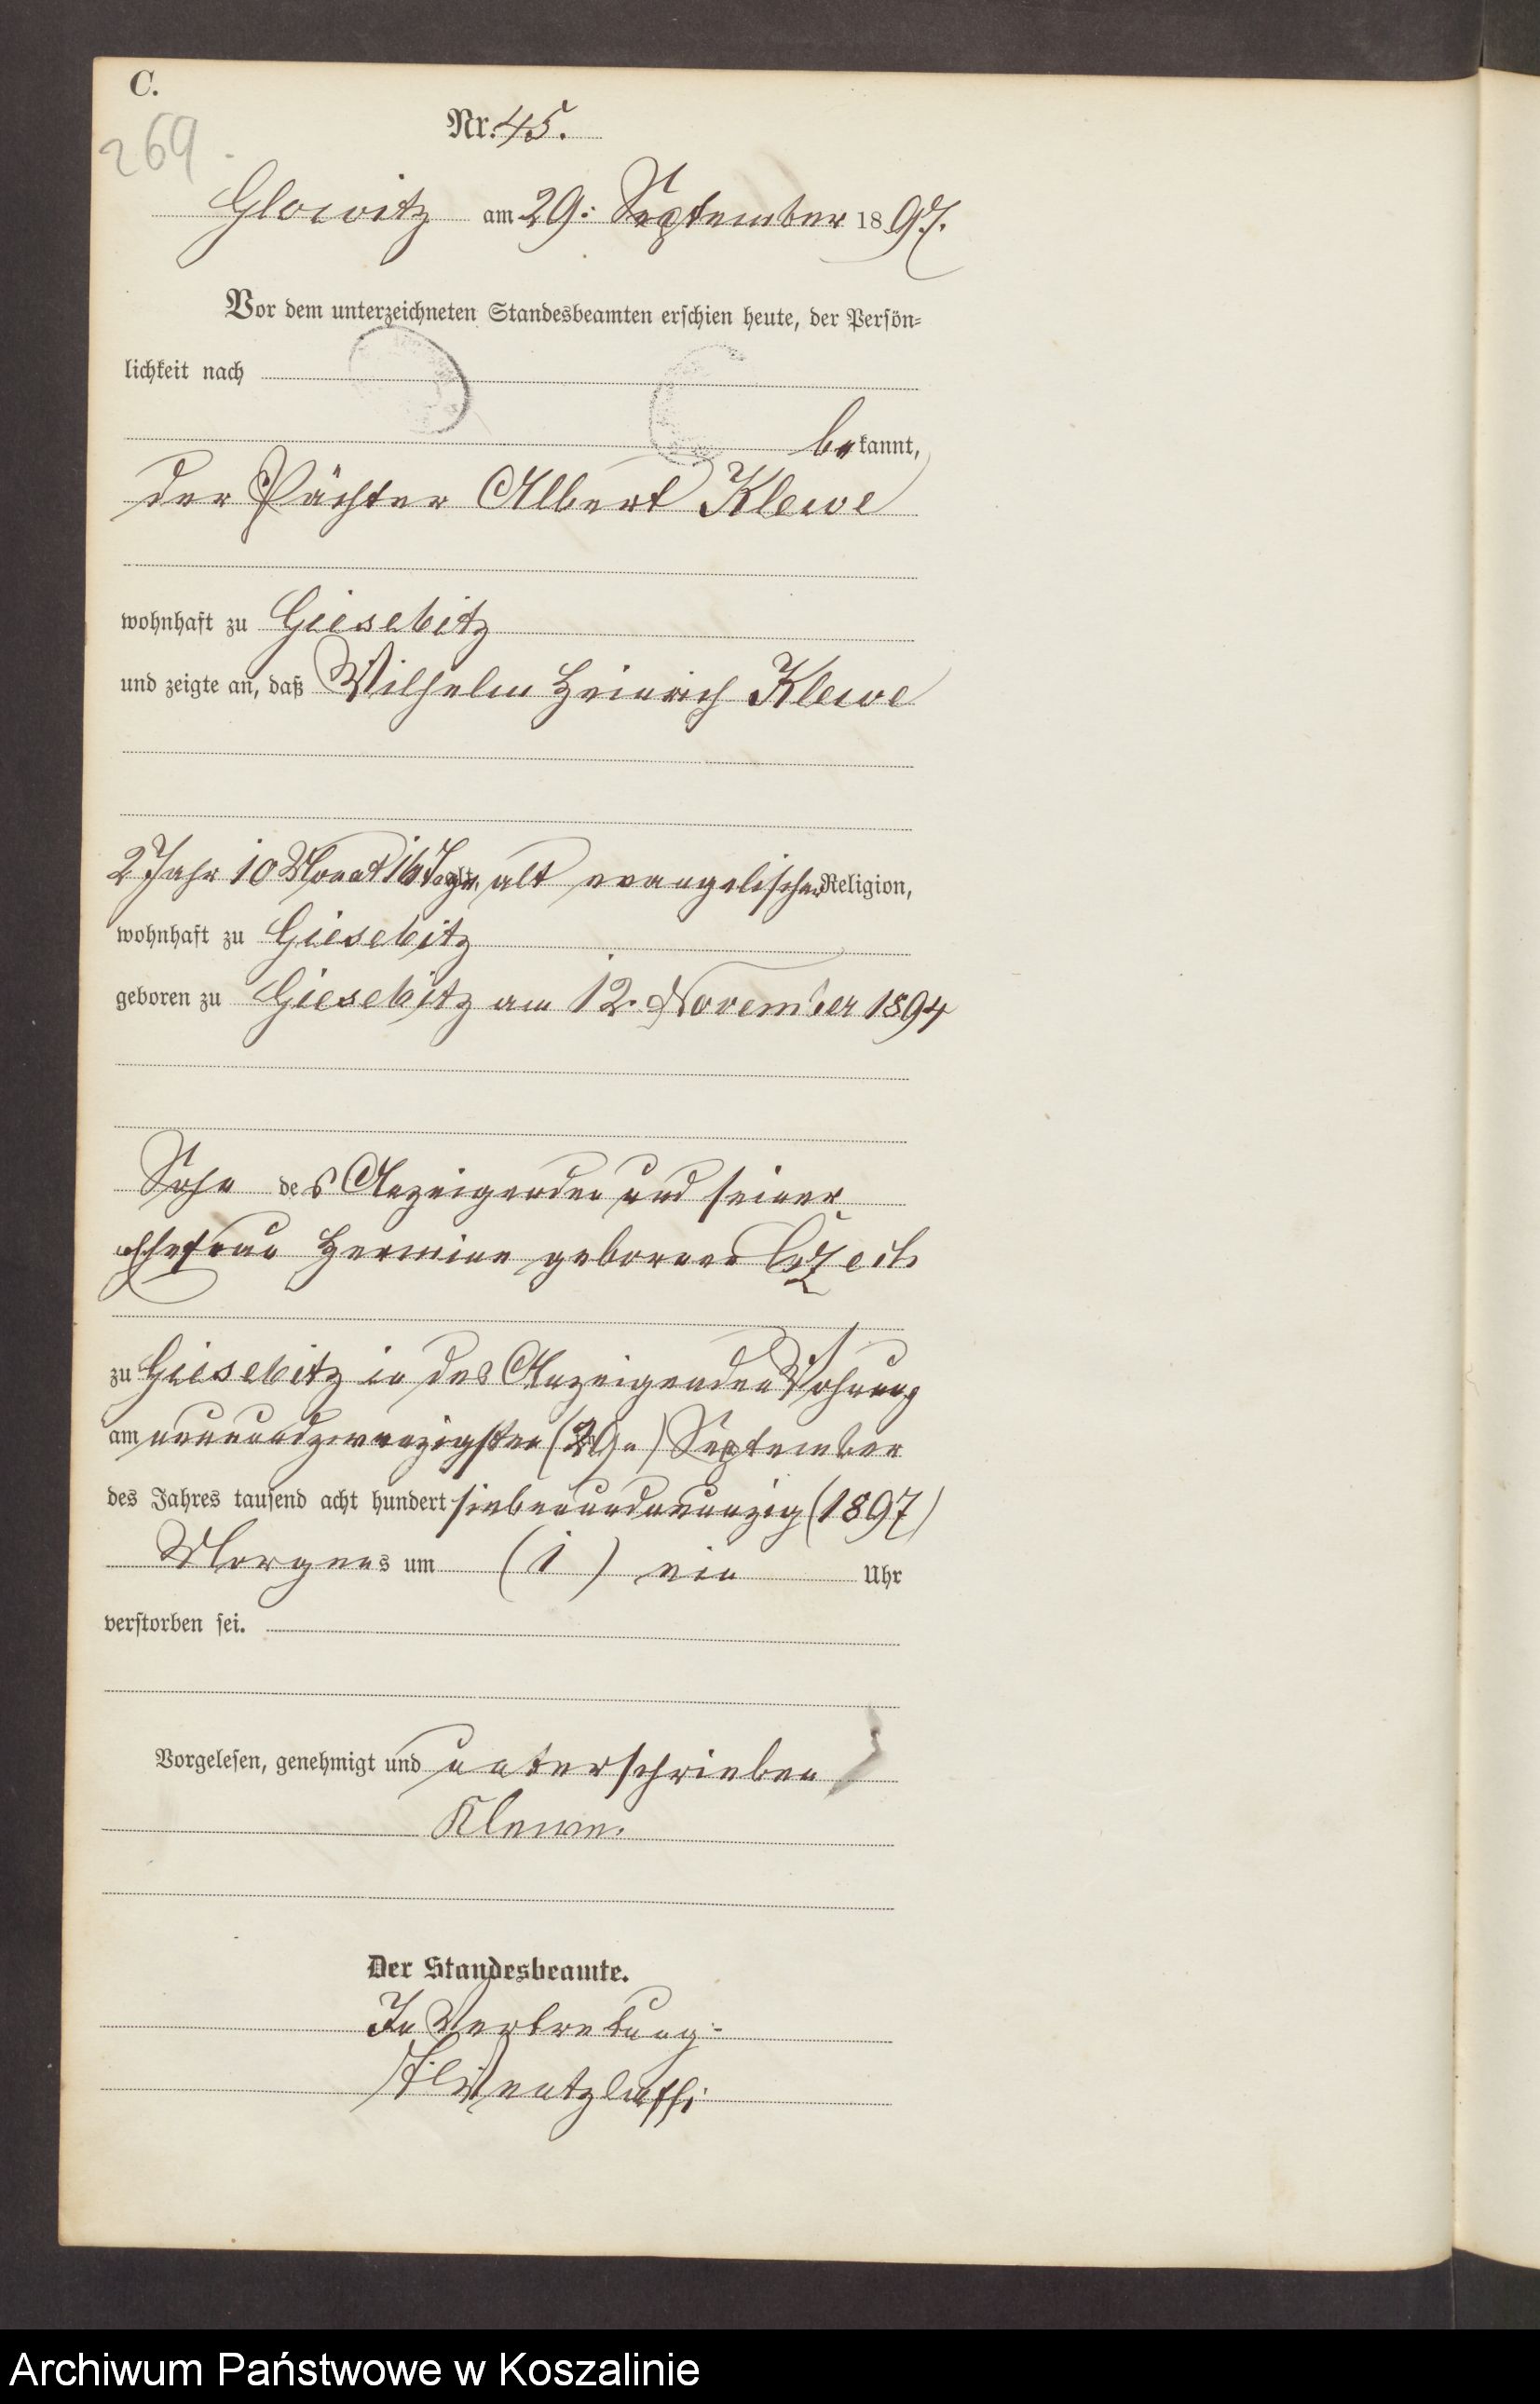 C.
269.
Nr. 45.
Glowitz am 29. September 1897.
Vor dem unterzeichneten Standesbeamten erschien heute, der Persön-
lichkeit nach
bekannt,
der Pächter Albert Klewe
wohnhaft zu Giesebitz
und zeigte an, daß Wilhelm Heinrich Klewe
2 Jahr 10 Monat 16 Tage, alt evangelischer Religion,
wohnhaft zu Giesebitz
geboren zu Giesebitz am 12. November 1894
Sohn des Anzeigenden und seiner
Ehefrau Hermine geborener Czech
zu Giesebitz in des Anzeigenden Wohnung
am neunundzwanzigsten (29.) September
des Jahres tausend acht hundert siebenundneunzig (1897)
Morgens um (1) ein Uhr
verstorben sei.
Vorgelesen, genehmigt und unterschrieben
Klewe.
Der Standesbeamte.
In Vertretung:
Wentzlaff.
Archiwum Państwowe w Koszalinie